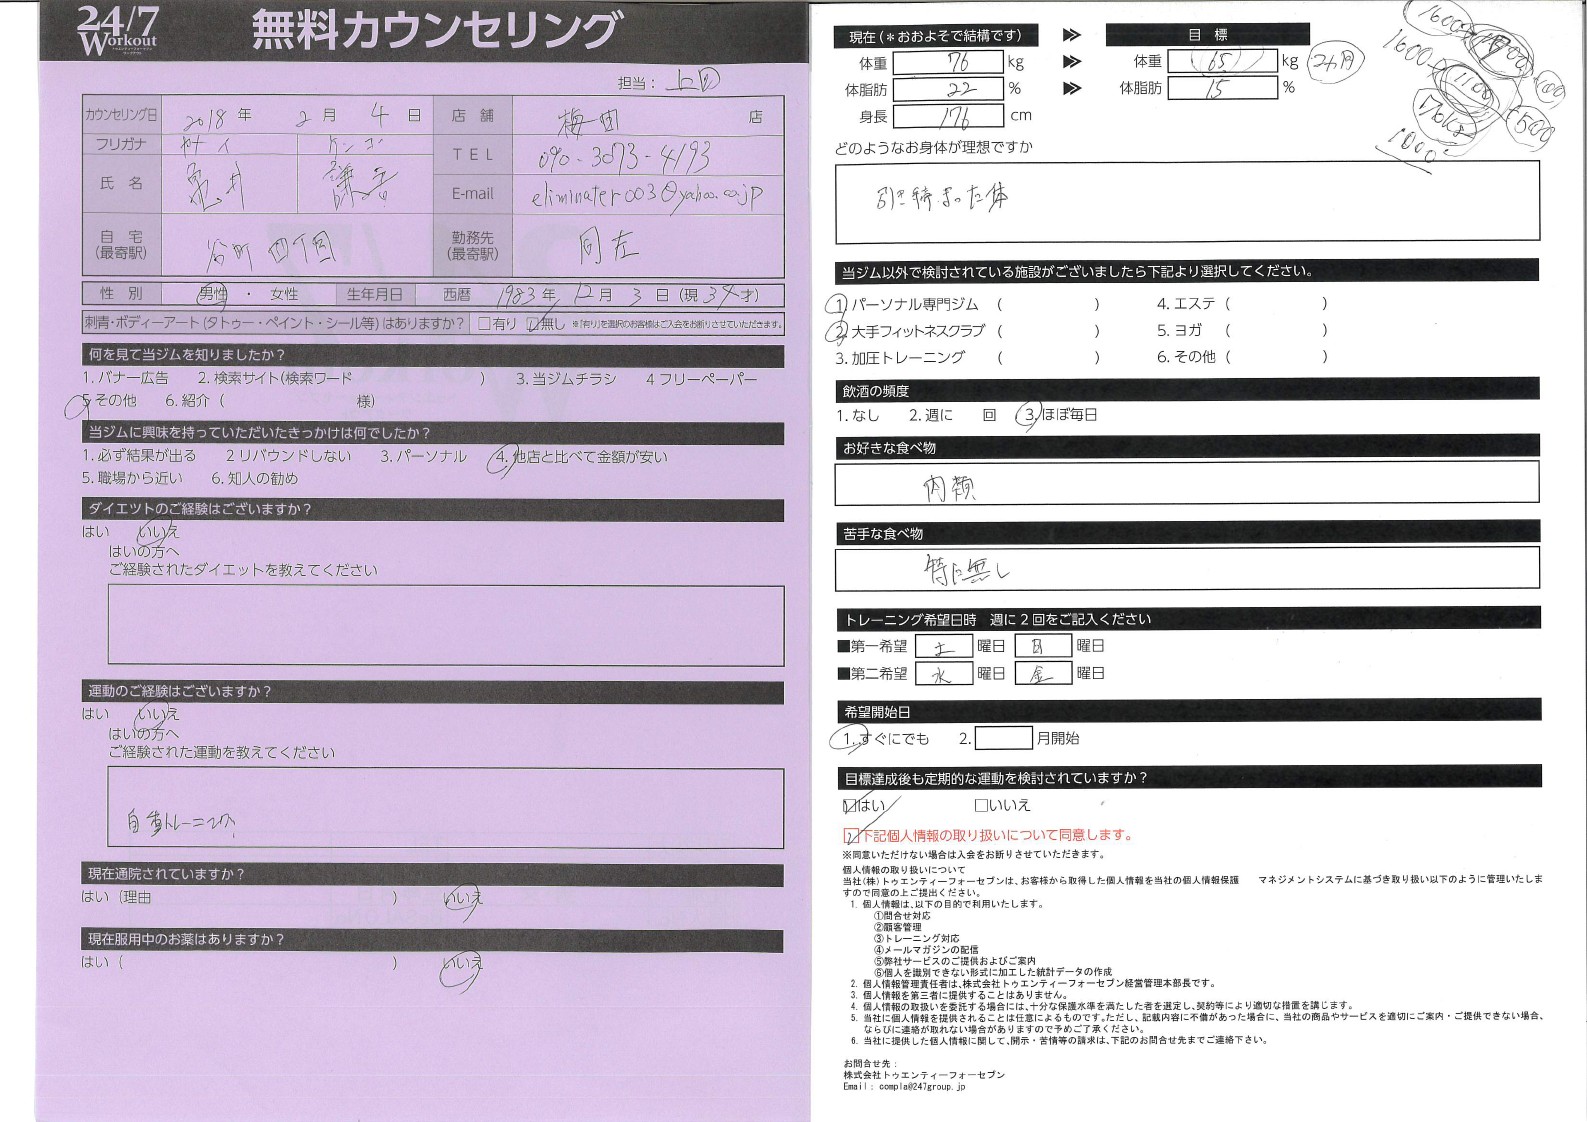 24/7
Workout
無料カウンセリング
担当：上田
カウンセリング日 2018 年 2 月 4 日 店舗 梅田 店
フリガナ カメイ ケンゴ
TEL 090-3073-4193
氏名 亀井
E-mail eliminater003@yahoo.co.jp
自宅(最寄駅) 谷町四丁目 勤務先(最寄駅) 同左
性別 男性 ・ 女性 生年月日 西暦 1983 年 12 月 3 日 (現 34 才)
刺青・ボディーアート (タトゥー・ペイント・シール等) はありますか? □有り □無し ※「有り」を選択のお客様はご入会をお断りさせていただきます。
何を見て当ジムを知りましたか?
1. バナー広告 2. 検索サイト(検索ワード ) 3. 当ジムチラシ 4 フリーペーパー
5 その他 6. 紹介 ( 様)
当ジムに興味を持っていただいたきっかけは何でしたか?
1. 必ず結果が出る 2 リバウンドしない 3. パーソナル 4. 他店と比べて金額が安い
5. 職場から近い 6. 知人の勧め
ダイエットのご経験はございますか?
はい いいえ
はいの方へ
ご経験されたダイエットを教えてください
運動のご経験はございますか?
はい いいえ
はいの方へ
ご経験された運動を教えてください
自重トレーニング
現在通院されていますか?
はい (理由 ) いいえ
現在服用中のお薬はありますか?
はい ( ) いいえ
現在 (＊おおよそで結構です) 目標
体重 76 kg 体重 65 kg 2ヶ月
体脂肪 22 % 体脂肪 15 %
身長 176 cm
1600
1600
1100
500g
1000
どのようなお身体が理想ですか
引き締まった体
当ジム以外で検討されている施設がございましたら下記より選択してください。
1 パーソナル専門ジム ( ) 4. エステ ( )
2 大手フィットネスクラブ ( ) 5. ヨガ ( )
3. 加圧トレーニング ( ) 6. その他 ( )
飲酒の頻度
1. なし 2. 週に 回 3. ほぼ毎日
お好きな食べ物
肉類
苦手な食べ物
特に無し
トレーニング希望日時 週に 2 回をご記入ください
■第一希望 土 曜日 日 曜日
■第二希望 水 曜日 金 曜日
希望開始日
1. すぐにでも 2. 月開始
目標達成後も定期的な運動を検討されていますか?
□はい □いいえ
□下記個人情報の取り扱いについて同意します。
※同意いただけない場合は入会をお断りさせていただきます。
個人情報の取り扱いについて
当社(株)トゥエンティーフォーセブンは、お客様から取得した個人情報を当社の個人情報保護 マネジメントシステムに基づき取り扱い以下のように管理いたしま
すので同意の上ご提出ください。
1. 個人情報は、以下の目的で利用いたします。
①問合せ対応
②顧客管理
③トレーニング対応
④メールマガジンの配信
⑤弊社サービスのご提供およびご案内
⑥個人を識別できない形式に加工した統計データの作成
2. 個人情報管理責任者は、株式会社トゥエンティーフォーセブン経営管理本部長です。
3. 個人情報を第三者に提供することはありません。
4. 個人情報の取扱いを委託する場合には、十分な保護水準を満たした者を選定し、契約等により適切な措置を講じます。
5. 当社に個人情報を提供されることは任意によるものです。ただし、記載内容に不備があった場合に、当社の商品やサービスを適切にご案内・ご提供できない場合、
ならびに連絡が取れない場合がありますので予めご了承ください。
6. 当社に提供した個人情報に関して、開示・苦情等の請求は、下記のお問合せ先までご連絡下さい。
お問合せ先：
株式会社トゥエンティーフォーセブン
Email：compla@247group.jp